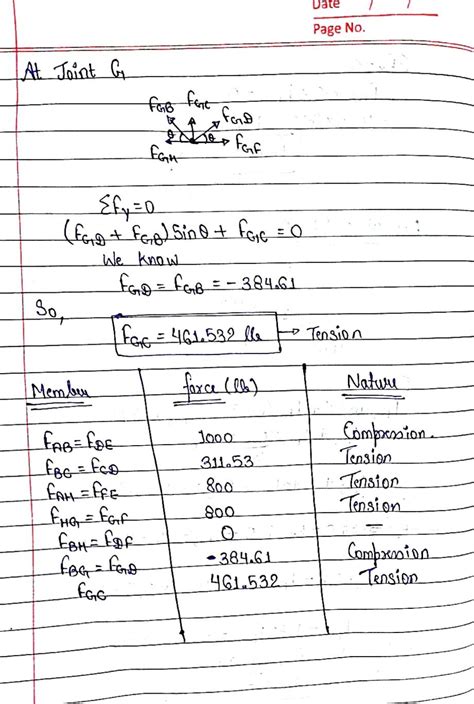 Date / /
Page No.
At Joint G
F_GB F_GC F_GD
θ θ
F_GH F_GF
Σfy=0
(F_GD + F_GB) Sinθ + F_GC = 0
We know
F_GD = F_GB = -384.61
So,
F_GC = 461.532 lb → Tension
Member force (lb) Nature
F_AB = F_DE 1000 Compression.
F_BC = F_CD 311.53 Tension
F_AH = F_FE 800 Tension
F_HG = F_GF 800 Tension
F_BH = F_DF 0 —
F_BG = F_GD -384.61 Compression
F_GC 461.532 Tension